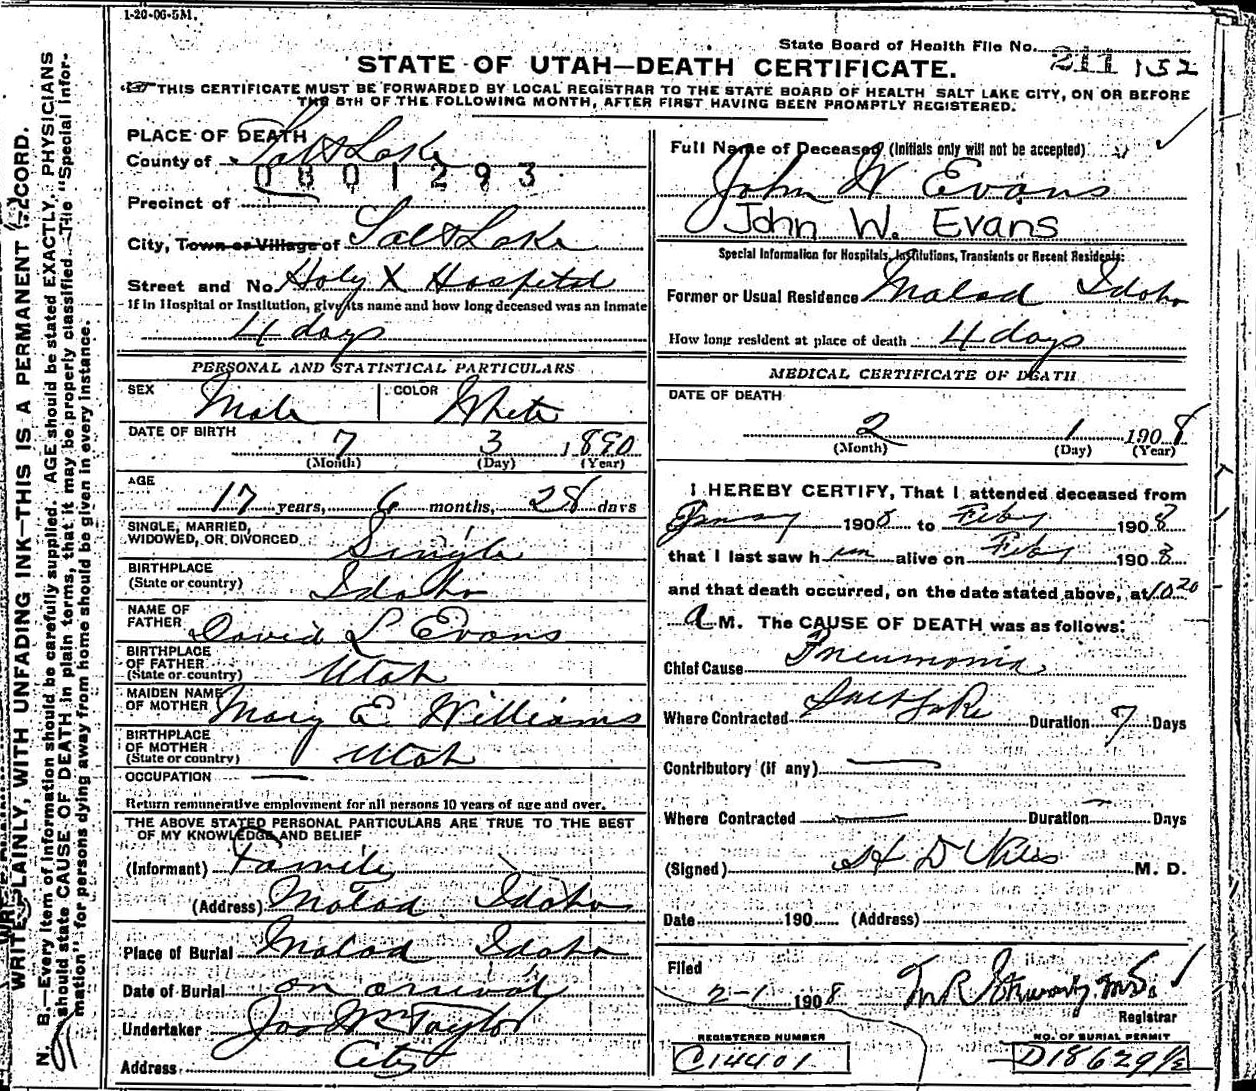 1-20-06-5M.
State Board of Health File No. 211 152
STATE OF UTAH—DEATH CERTIFICATE.
THIS CERTIFICATE MUST BE FORWARDED BY LOCAL REGISTRAR TO THE STATE BOARD OF HEALTH SALT LAKE CITY, ON OR BEFORE
THE 5TH OF THE FOLLOWING MONTH, AFTER FIRST HAVING BEEN PROMPTLY REGISTERED.
WRITE PLAINLY, WITH UNFADING INK—THIS IS A PERMANENT RECORD.
N. B.—Every item of information should be carefully supplied. AGE should be stated EXACTLY. PHYSICIANS
should state CAUSE OF DEATH in plain terms, that it may be properly classified. The "Special infor-
mation" for persons dying away from home should be given in every instance.
PLACE OF DEATH
County of Salt Lake
0801293
Precinct of
City, Town or Village of Salt Lake
Street and No. Holy X Hospital
If in Hospital or Institution, give its name and how long deceased was an inmate
4 days
PERSONAL AND STATISTICAL PARTICULARS
SEX Male COLOR White
DATE OF BIRTH 7 3 1890
(Month) (Day) (Year)
AGE
17 years, 6 months, 28 days
SINGLE, MARRIED,
WIDOWED, OR DIVORCED Single
BIRTHPLACE
(State or country) Idaho
NAME OF
FATHER David L Evans
BIRTHPLACE
OF FATHER
(State or country) Utah
MAIDEN NAME
OF MOTHER Mary E. Williams
BIRTHPLACE
OF MOTHER
(State or country) Utah
OCCUPATION —
Return remunerative employment for all persons 10 years of age and over.
THE ABOVE STATED PERSONAL PARTICULARS ARE TRUE TO THE BEST
OF MY KNOWLEDGE AND BELIEF
(Informant) Family
(Address) Malad Idaho
Place of Burial Malad Idaho
Date of Burial on arrival
Undertaker Jos Wm Taylor
Address City
Full Name of Deceased (Initials only will not be accepted)
John W Evans
John W. Evans
Special Information for Hospitals, Institutions, Transients or Recent Residents:
Former or Usual Residence Malad Idaho
How long resident at place of death 4 days
MEDICAL CERTIFICATE OF DEATH
DATE OF DEATH
2 1 1908
(Month) (Day) (Year)
I HEREBY CERTIFY, That I attended deceased from
1908 to Feby 1908
that I last saw h im alive on Feby 1908
and that death occurred, on the date stated above, at 10 20
A M. The CAUSE OF DEATH was as follows:
Chief Cause Pneumonia
Where Contracted Salt Lake Duration 7 Days
Contributory (if any) —
Where Contracted — Duration — Days
(Signed) H D Niles M. D.
Date 190 (Address)
Filed
2-1 1908 M.D.
Registrar
REGISTERED NUMBER
C14401
NO. OF BURIAL PERMIT
D18629½